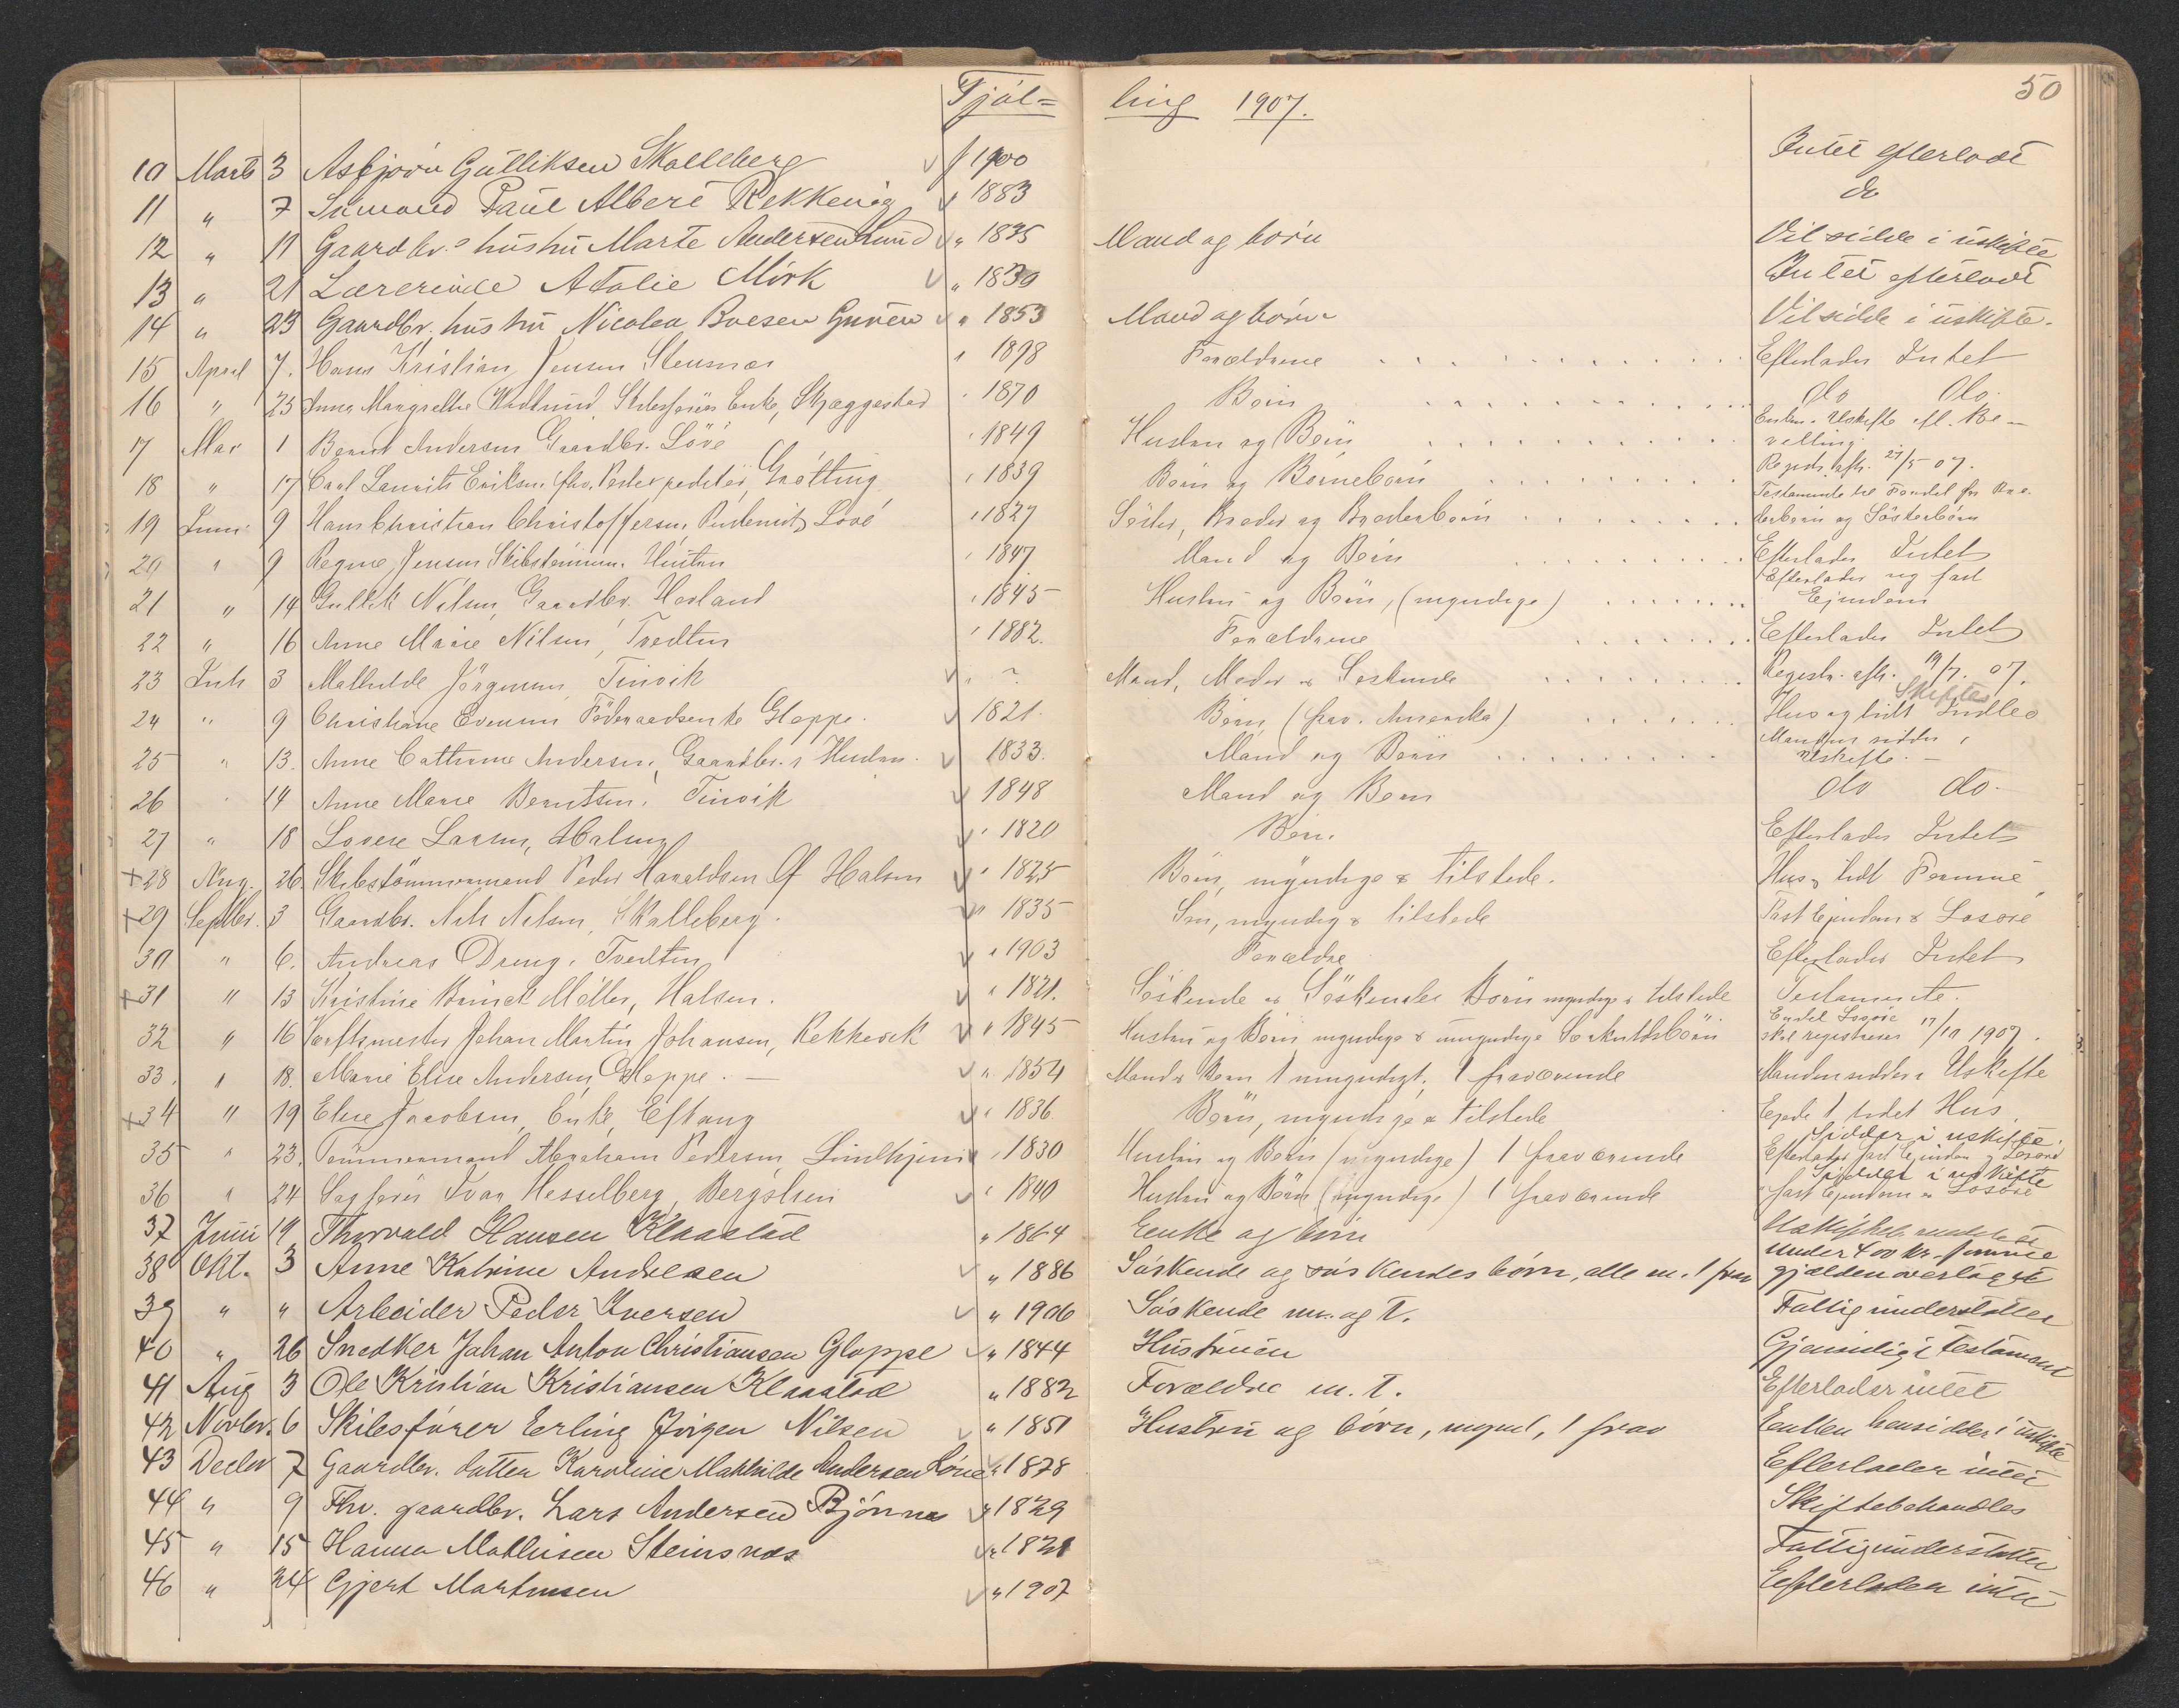 Tjöl= ling 1907. 50
10 Marts 3 Asbjørn Gulliksen Skalleberg f 1900 Intet efterladt
11 " 7 Paul Albert Rekkevig " 1883 do
12 " 11 Gaardbr.s hustru Marte Andersen Lund " 1835 Mand og børn Vil sidde i uskifte
13 " 21 Lærerinde Atalie Mørk " 1830 Intet efterladt
14 " 23 Gaardbr. hustru Nicolea Boesen Guren " 1853 Mand og børn Vil sidde i uskifte.
15 April 7. Hans Kristian Jensen Stensnes " 1898 Forældrene Efterlader Intet
16 " 25 Anna Margrethe Wadlund, Skibsförers Enke, Skjæggestad " 1870 Börn do do.
17 Mai 1 Bernt Andersen Gaardbr. Löve " 1849 Hustru og Börn Enken Uskifte efl. Be-
villing.
18 " 17 Carl Laurits Eriksen, fhv. Postexpeditör, Grötting " 1839 Börn og Börnebörn Regist. afh. 27/5 07.
19 Juni 9 Hans Christian Christoffersen, Löve " 1827 Söster, Broder og Broderbörn Testamente til Fordel for Bro-
derbörn og Södsterbörn
20 " 9 Regine Jensen Skibstömmerm. Hustru " 1847 Mand og Börn Efterlader Intet
21 " 14 Gullik Nilsen, Gaardbr. Hovland " 1845 Hustru og Börn, (myndige) Efterlader sig fast
Ejendom
22 " 16 Anne Marie Nilsen, Tvedten " 1882. Forældrene Efterlader Intet
23 Juli 3 Mathilde Jörgensen, Tinvik " ? Mand, Moder & Söskende Registr. afh. 19/7. 07.
24 " 9 Christiane Evensen Föderaadsenke Gloppe. 1821. Börn (frav. Amerika) Hus og lidt Indbo Skiftes
25 " 13. Anne Cathrine Andersen, Gaardbr.s Hustru. 1833. Mand og Börn Manden sidder i
Uskifte. —
26 " 14 Anne Marie Berntsen, Tinvik 1848 Mand og Börn do do.
27 " 18 Lovise Larsen, Halsen " 1820 Börn. Efterlader Intet
+28 Aug. 26 Skibstömmermand Peder Haraldsen Ö Halsen " 1825 Börn, myndige & tilstede. Hus, lidt
+29 Septbr. 3 Gaardbr. Nils Nilsen, Skalleberg. " 1835 Sön, myndig & tilstede Fast Ejendom & Losöre
30 " 6. Andreas Dreng, Tvedten " 1903 Forældre Efterlader Intet
+31 " 13 Kristine Brinck Möller, Halsen. " 1821. Söskende og Söskendes Börn myndige & tilstede Testamente.
32 " 16 Værftsmester Johan Martin Johansen, Rekkevik " 1845 Hustru og Börn myndige & umyndige Særkuldsbörn Endel Losöre
skal registreres 17/10 1907.
33. " 18. Marie Elise Andersen, Gloppe. — " 1854 Mand & Börn 1 umyndigt, 1 fraværende Manden sidder i Uskifte
+34 " 19 Elise Jacobsen, Enke, Eftang " 1836 Börn, myndige & tilstede Ejede 1 lidet Hus
35 " 23. Tömmermand Abraham Pedersen Lindhjem " 1830 Hustru og Börn (myndige) 1 fraværende Sidder i uskifte.
Efterlader fast Ejendom & Losöre
36 " 24 Sagförer Ivar Hesselberg, Bergslien " 1840 Hustru og Börn (myndige) 1 fraværende Sidder i uskifte
" fast Ejendom & Losöre
37 Juni 19 Thorvald Hansen Klaastad " 1864 Enke og börn
38 Okt. 3 Anne Katrine Andresen " 1886 Söskende og söskendes börn, alle m. 1 frav under 400 kr.
gjælden overtaget
39 " " Arbeider Peder Iversen " 1906 Söskende m. og t. Fattigunderstöttet
40 " 26 Snedker Johan Anton Christiansen Gloppe " 1844 Hustruen Gjensidigt testament
41 Aug 3 Ole Kristian Kristiansen Klaastad " 1882 Forældre m. t. Efterlader intet
42 Novbr. 6 Skibsfører Erling Jørgen Nilsen " 1851 Hustru og børn, mynd, 1 frav Enken hensidder i uskifte
43 Decbr 7 Gaardbr. datter Karoline Mathilde Andersen Löve " 1878 Efterlader intet
44 " 9 Fhv. gaardbr. Lars Andersen Bjönnes " 1829 Skiftebehandles
45 " 15 Hanna Mathisen Steinsnæs " 1821 Fattigunderstöttet
46 " 24 Gjert Martinsen " 1907 Efterlader intet